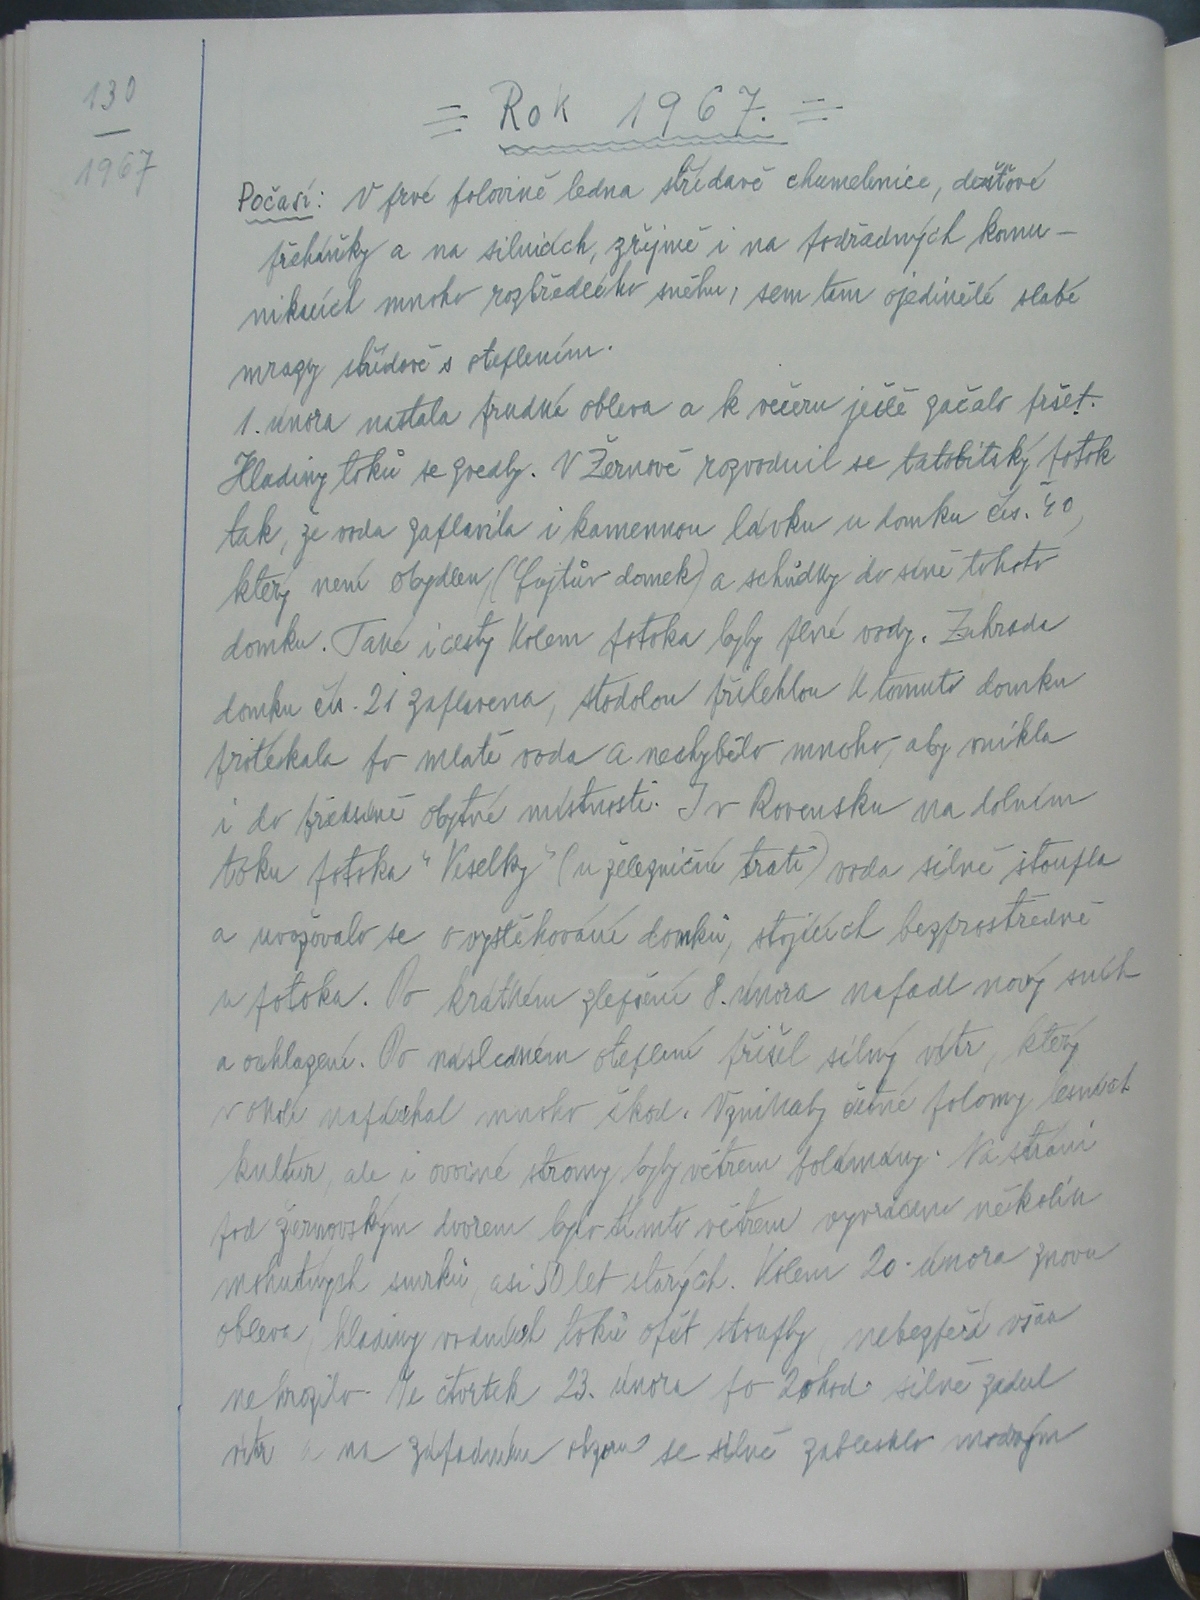 130
1967
= Rok 1967. =
Počasí: V prvé polovině ledna střídavě chumelenice, dešťové
přeháňky a na silnicích, zřejmě i na podřadných komu-
nikacích mnoho rozbředlého sněhu, sem tam ojedinělé slabé
mrazy střídavě s oteplením.
1. února nastala prudká obleva a k večeru ještě začalo pršet.
Hladiny toků se zvedly. V Žernově rozvodnil se tatobitský potok
tak, že voda zaplavila i kamennou lávku u domku čís. 40,
který není obydlen (Cajtův domek) a schůdky do síně tohoto
domku. Také i cesty kolem potoka byly plné vody. Zahrada
domku čís. 21 zaplavena, stodolou přilehlou k tomuto domku
protékala po mlatě voda a nechybělo mnoho, aby vnikla
i do předsíně obytné místnosti. I v Rovensku na dolním
toku potoka "Veselky" (u železniční trati) voda silně stoupla
a uvažovalo se o vystěhování domků, stojících bezprostředně
u potoka. Po krátkém zlepšení 8. února napadl nový sníh
a ochlazení. Po následném oteplení přišel silný vítr, který
v okolí napáchal mnoho škod. Vznikaly četné polomy lesních
kultur, ale i ovocné stromy byly větrem polámány. Na stráni
pod žernovským dvorem bylo tímto větrem vyvráceno několik
mohutných smrků, asi 50 let starých. Kolem 20. února znovu
obleva, hladiny vodních toků opět stouply, nebezpečí však
nehrozilo. Ve čtvrtek 23. února po 20 hod. silně zadul
vítr a na západním obzoru se silně zablesklo modrým